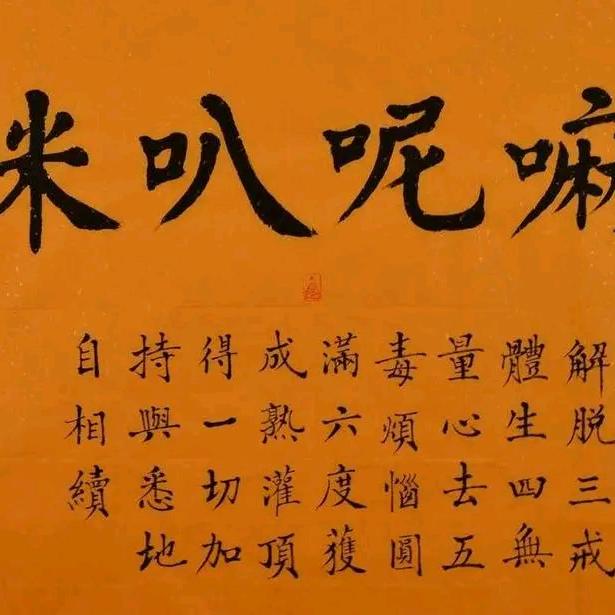 嘛呢叭咪
解脫三戒
體生四無
量心去五
毒煩惱圓
滿六度獲
成熟灌頂
得一切加
持與悉地
自相續